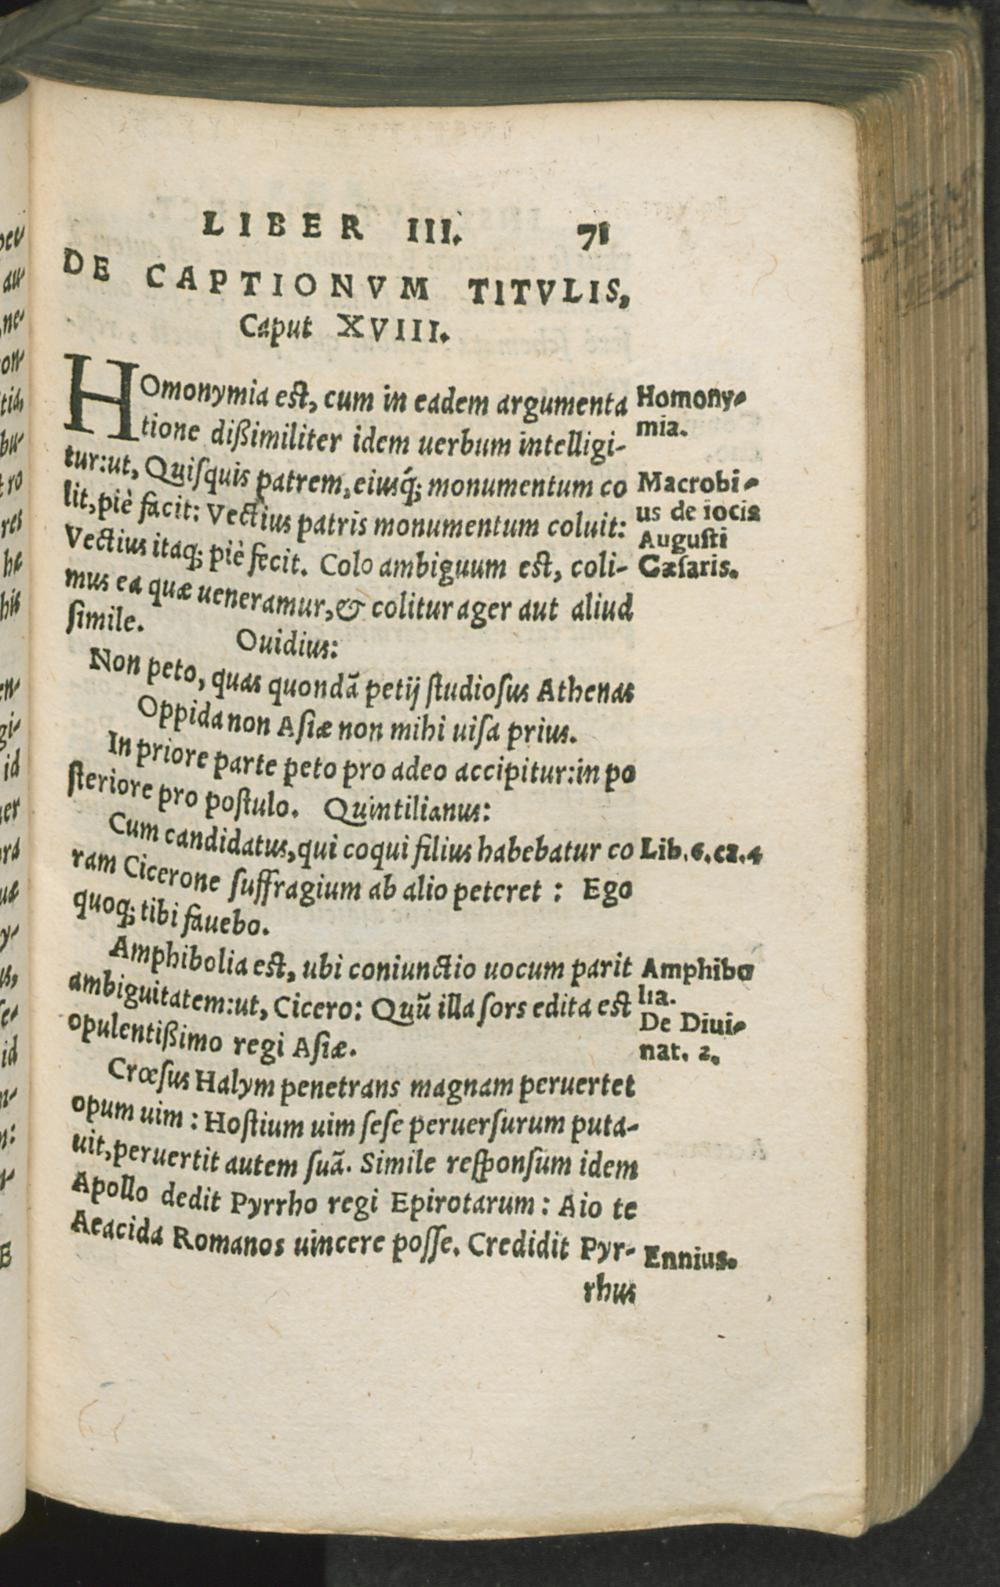 LIBER III. 71
DE CAPTIONVM TITVLIS,
Caput XVIII.
HOmonymia est, cum in eadem argumenta
tione dißimiliter idem uerbum intelligi-
tur:ut, Quisquis patrem, eiusq́; monumentum co
lit, piè facit: Vectius patris monumentum coluit:
Vectius itaq; piè fecit. Colo ambiguum est, coli-
mus ea quæ ueneramur, & colitur ager aut aliud
simile.
Ouidius:
Non peto, quas quondā petij studiosus Athenas
Oppida non Asiæ non mihi uisa prius.
In priore parte peto pro adeo accipitur: in po
steriore pro postulo. Quintilianus:
Cum candidatus, qui coqui filius habebatur co
ram Cicerone suffragium ab alio peteret : Ego
quoq; tibi fauebo.
Amphibolia est, ubi coniunctio uocum parit
ambiguitatem:ut, Cicero: Quū illa sors edita est
opulentißimo regi Asiæ.
Crœsus Halym penetrans magnam peruertet
opum uim : Hostium uim sese peruersurum puta-
uit, peruertit autem suā. Simile responsum idem
Apollo dedit Pyrrho regi Epirotarum : Aio te
Aeacida Romanos uincere posse. Credidit Pyr-
rhus
Homony-
mia.
Macrobi-
us de iocis
Augusti
Cæsaris.
Lib. 6. ca. 4
Amphibo
lia.
De Diui-
nat. 2.
Ennius.